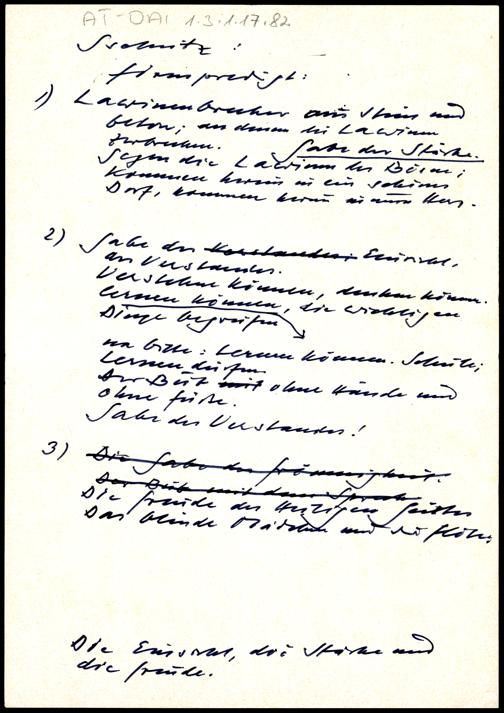 AT-DAI 1.3.1.17.82
Sschnitz:
Firmpredigt:
1) Lawinenbrecher aus Stein und
beton; an denen die Lawinen
zerbrechen. Gabe der Stärke.
Gegen die Lawinen des Bösen;
kommen herein in ein schönes
Dorf, kommen herein in unser Herz.
2) Gabe der Verstandes; Einsicht,
des Verstandes.
Verstehen können, denken können.
lernen können, die wichtigen
Dinge begreifen
na bitte: Lernen können. Schule;
Lernen dürfen
Der Bub mit ohne Hände und
ohne Füße.
Gabe des Verstandes!
3) Die Gabe der Frömmigkeit.
Der Bub mit dem Sprech
Die Freude des Heiligen Geistes
Das blinde Mädchen und die Flöte;
Die Einsicht, die Stärke und
die Freude.